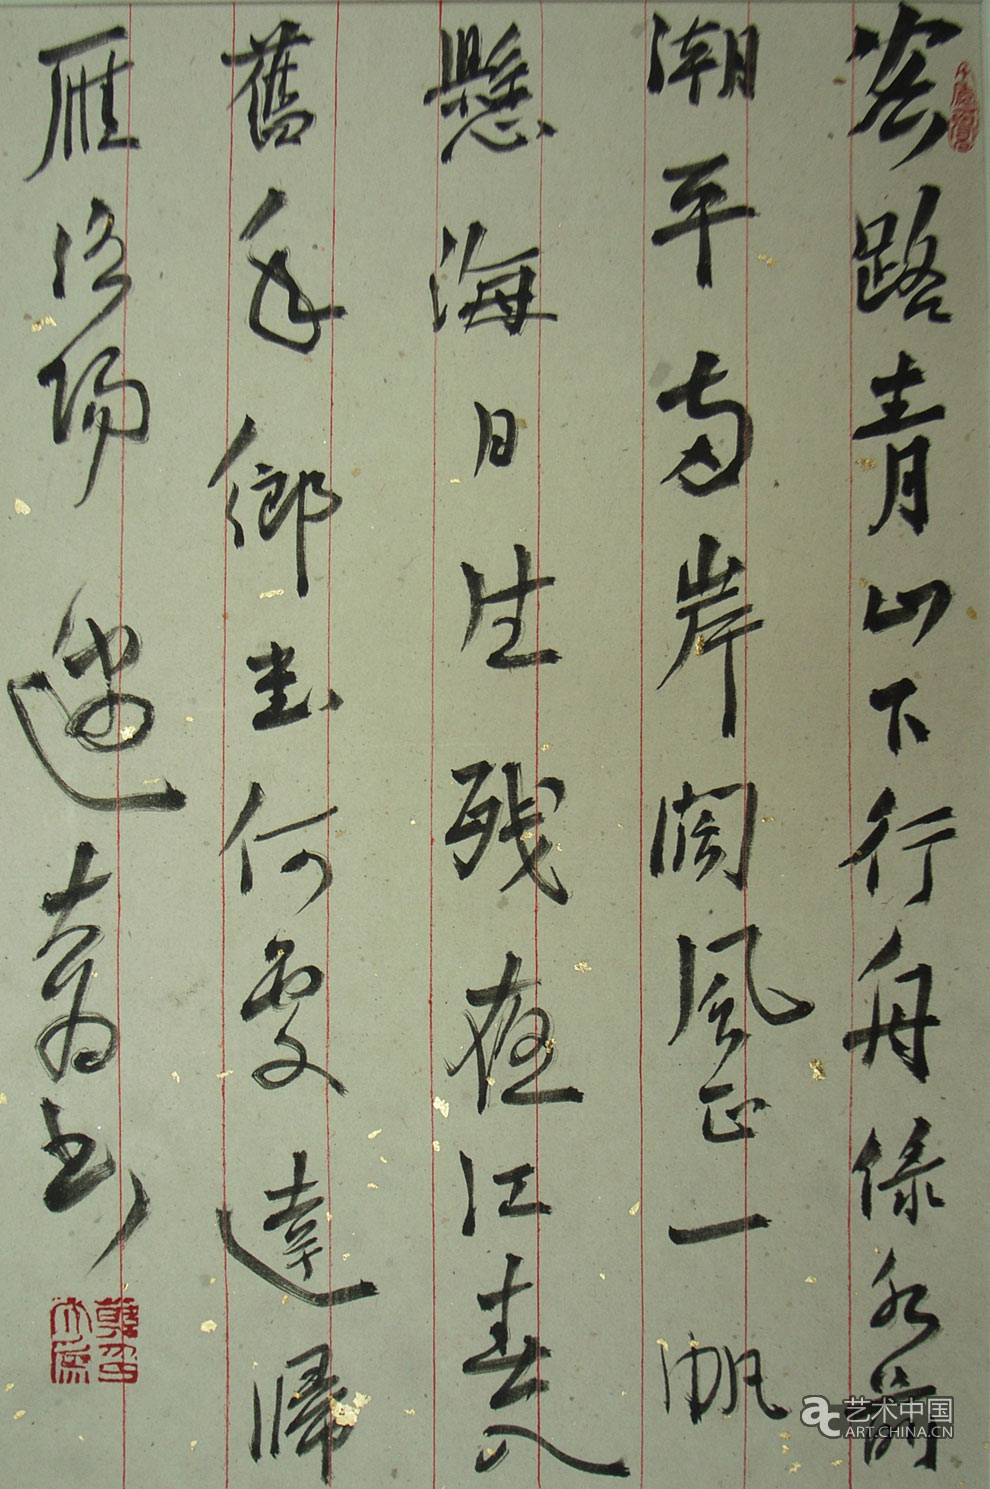 客路青山下行舟緑水前
潮平两岸阔风正一帆
懸海日生残夜江春入
舊年鄉書何處達歸
雁洛陽邊 大为书
艺术中国
ART.CHINA.CN